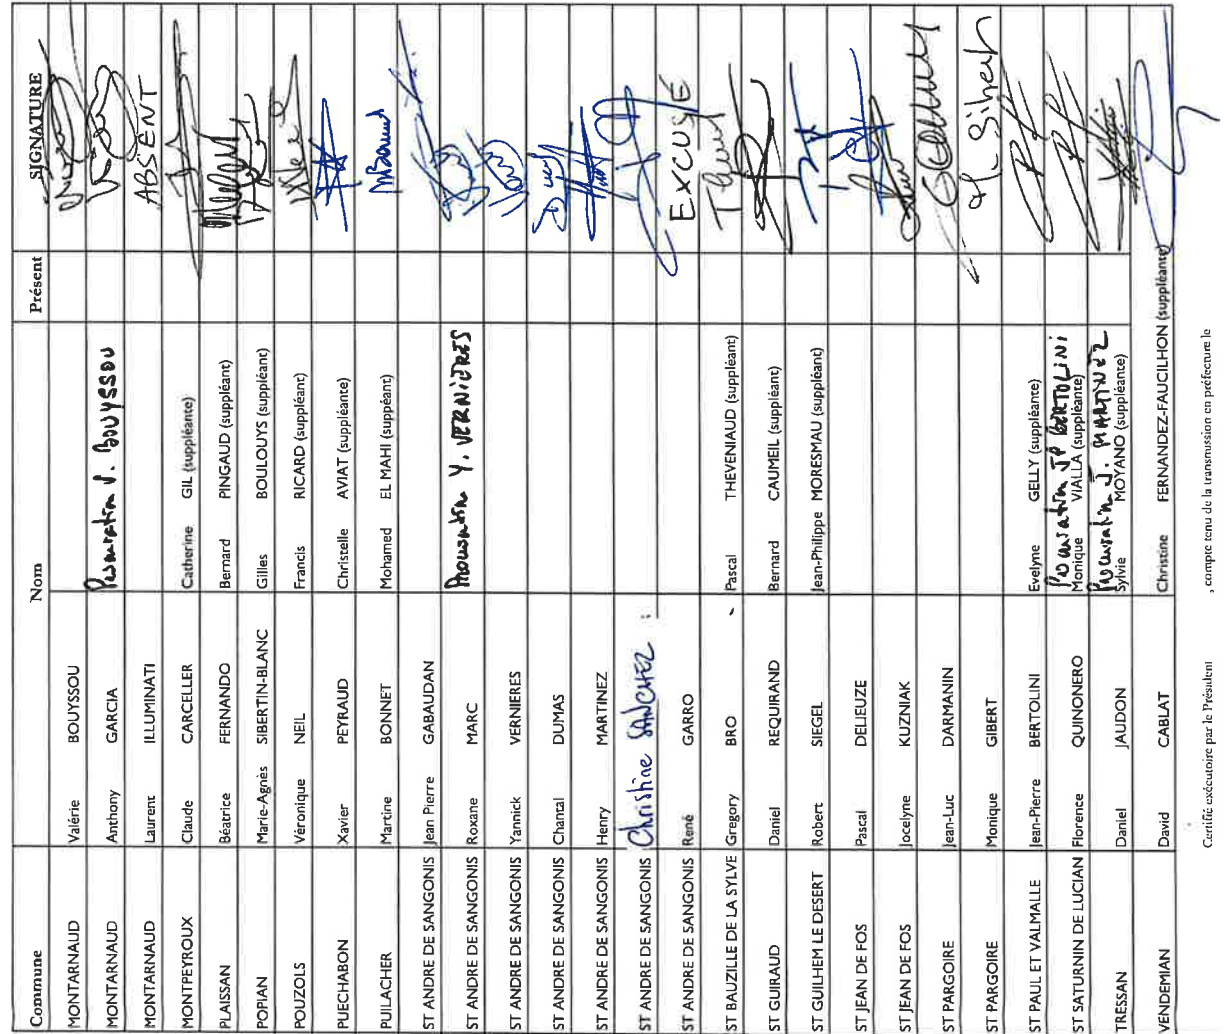 Commune Nom Présent SIGNATURE
MONTARNAUD Valérie BOUYSSOU
MONTARNAUD Anthony GARCIA Procuration V. BOUYSSOU
MONTARNAUD Laurent ILLUMINATI ABSENT
MONTPEYROUX Claude CARCELLER Catherine GIL (suppléante)
PLAISSAN Béatrice FERNANDO Bernard PINGAUD (suppléant)
POPIAN Marie-Agnès SIBERTIN-BLANC Gilles BOULOUYS (suppléant)
POUZOLS Véronique NEIL Francis RICARD (suppléant)
PUECHABON Xavier PEYRAUD Christelle AVIAT (suppléante)
PUILACHER Martine BONNET Mohamed EL MAHI (suppléant) MBonnet
ST ANDRE DE SANGONIS Jean Pierre GABAUDAN
ST ANDRE DE SANGONIS Roxane MARC Procuration Y. VERNIERES
ST ANDRE DE SANGONIS Yannick VERNIERES
ST ANDRE DE SANGONIS Chantal DUMAS
ST ANDRE DE SANGONIS Henry MARTINEZ
ST ANDRE DE SANGONIS Christine SANCHEZ
ST ANDRE DE SANGONIS René GARRO EXCUSÉ
ST BAUZILLE DE LA SYLVE Gregory BRO Pascal THEVENIAUD (suppléant)
ST GUIRAUD Daniel REQUIRAND Bernard CAUMEIL (suppléant)
ST GUILHEM LE DESERT Robert SIEGEL Jean-Philippe MORESMAU (suppléant)
ST JEAN DE FOS Pascal DELIEUZE
ST JEAN DE FOS Jocelyne KUZNIAK
ST PARGOIRE Jean-Luc DARMANIN
ST PARGOIRE Monique GIBERT M. Gibert
ST PAUL ET VALMALLE Jean-Pierre BERTOLINI Evelyne GELLY (suppléante)
ST SATURNIN DE LUCIAN Florence QUINONERO Procuration JP BERTOLINI Monique VIALLA (suppléante)
TRESSAN Daniel JAUDON Procuration J. MARTINEZ Sylvie MOYANO (suppléante)
VENDEMIAN David CABLAT Christine FERNANDEZ-FAUCILHON (suppléante)
Certifié exécutoire par le Président , compte tenu de la transmission en préfecture le